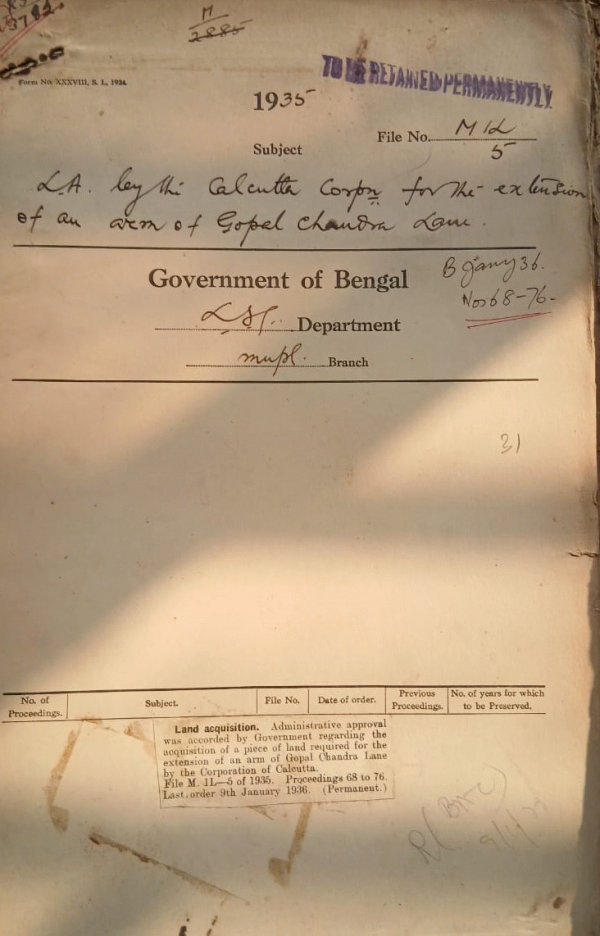 3782.
M
2885
Form No. XXXVIII, S. I., 1934.
TO BE RETAINED PERMANENTLY
1935
File No. M 1L
5
Subject
L.A. by the Calcutta Corpn for the extension
of an arm of Gopal Chandra Lane.
Government of Bengal
B Jany 36.
Nos 68-76-
Department
mupl. Branch
31
No. of Proceedings.
Subject.
File No.
Date of order.
Previous Proceedings.
No. of years for which to be Preserved.
Land acquisition. Administrative approval
was accorded by Government regarding the
acquisition of a piece of land required for the
extension of an arm of Gopal Chandra Lane
by the Corporation of Calcutta.
File M. 1L—5 of 1935. Proceedings 68 to 76.
Last order 9th January 1936. (Permanent.)